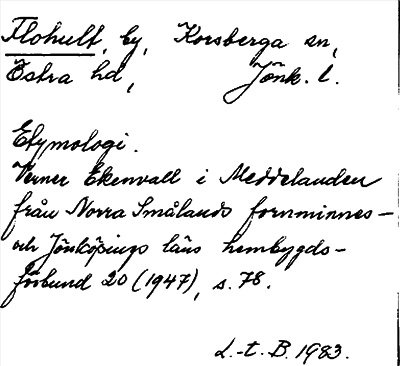 Flohult, by, Korsberga sn,
Östra hd, Jönk. l.
Etymologi.
Verner Ekenvall i Meddelanden
från Norra Smålands fornminnes-
och Jönköpings läns hembygds-
förbund 20 (1947), s. 78.
L.-t. B. 1983.